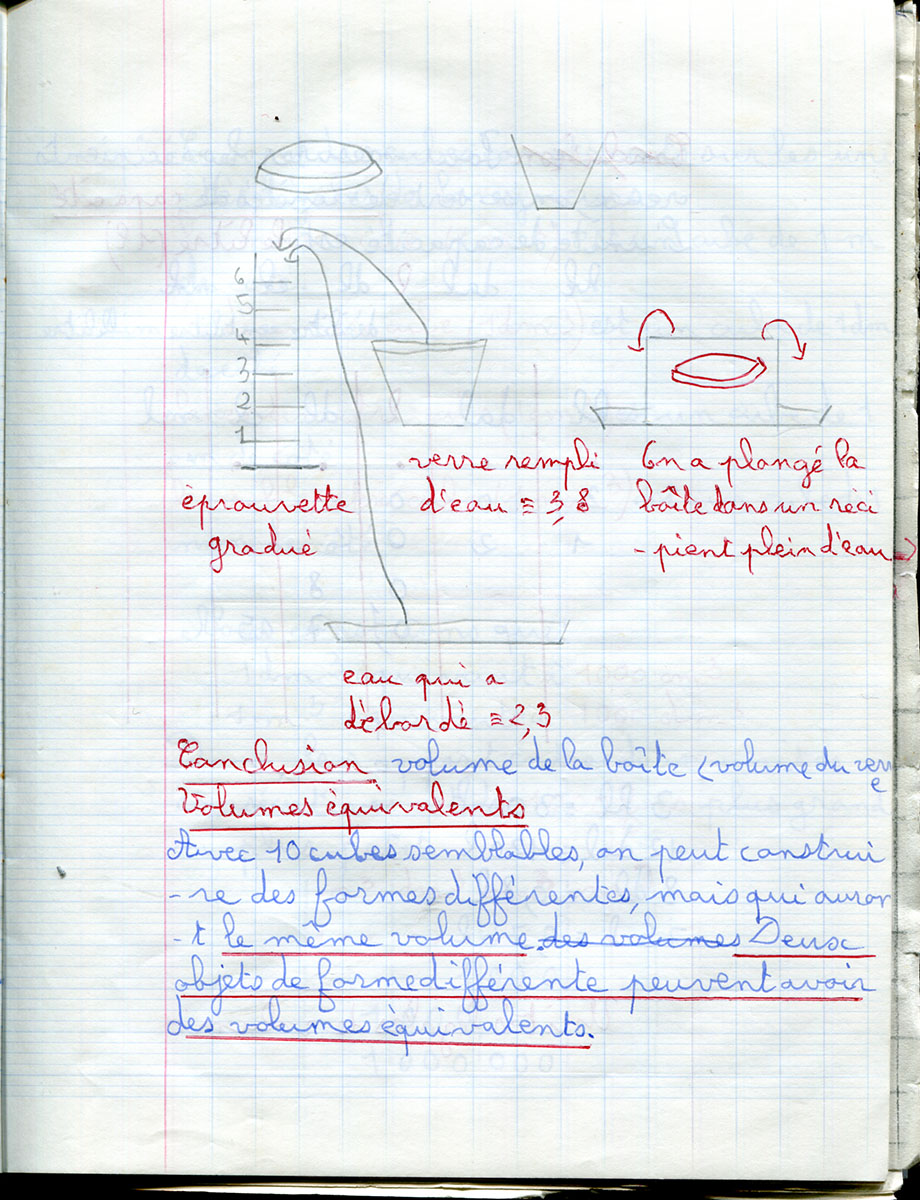 6
5
4
3
2
1
éprouvette
gradué
verre rempli
d'eau ≡ 3,8
On a plongé la
boîte dans un réci
-pient plein d'eau
eau qui a
débordé ≡ 2,3
Conclusion volume de la boîte < volume du verre
Volumes équivalents
Avec 10 cubes semblables, on peut construi
-re des formes différentes, mais qui auron
-t le même volume. des volumes Deux
objets de forme différente peuvent avoir
des volumes équivalents.